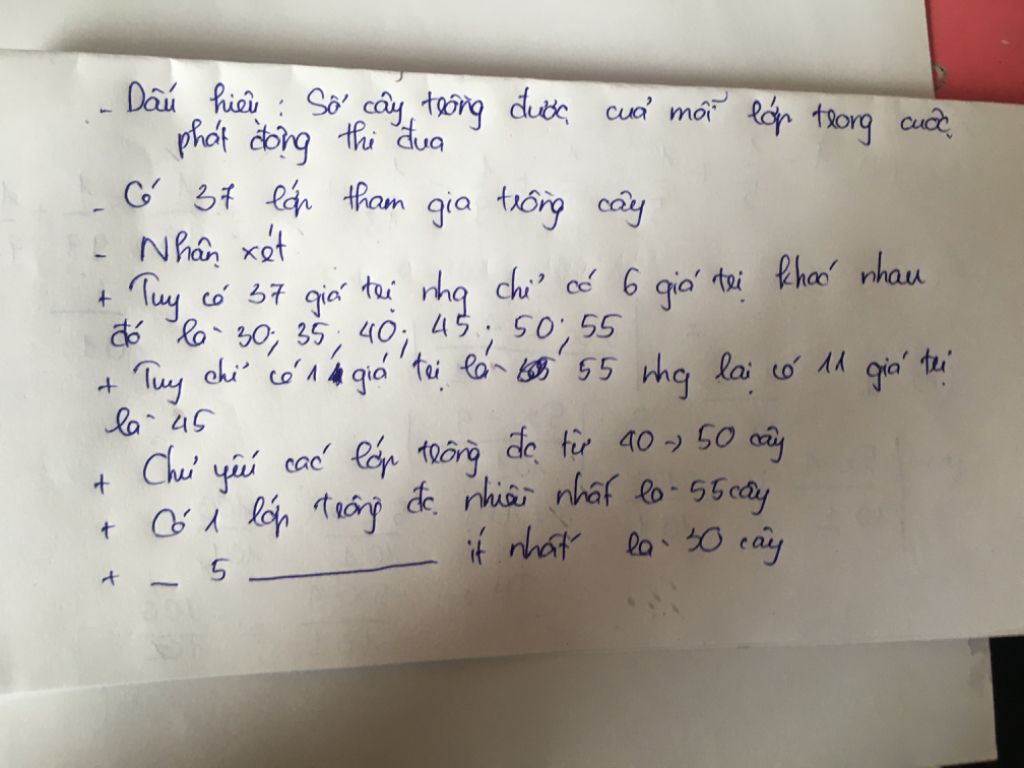 - Dấu hiệu : Số cây trồng được của mỗi lớp trong cuộc
phát động thi đua
- Có 37 lớp tham gia trồng cây
- Nhận xét
+ Tuy có 37 giá trị nhg chỉ có 6 giá trị khác nhau
đó là 30; 35; 40; 45; 50; 55
+ Tuy chỉ có 1 giá trị là 55 nhg lại có 11 giá trị
là 45
+ Chủ yếu các lớp trồng đc từ 40 -> 50 cây
+ Có 1 lớp trồng đc nhiều nhất là 55 cây
+ _ 5 ______ ít nhất là 30 cây